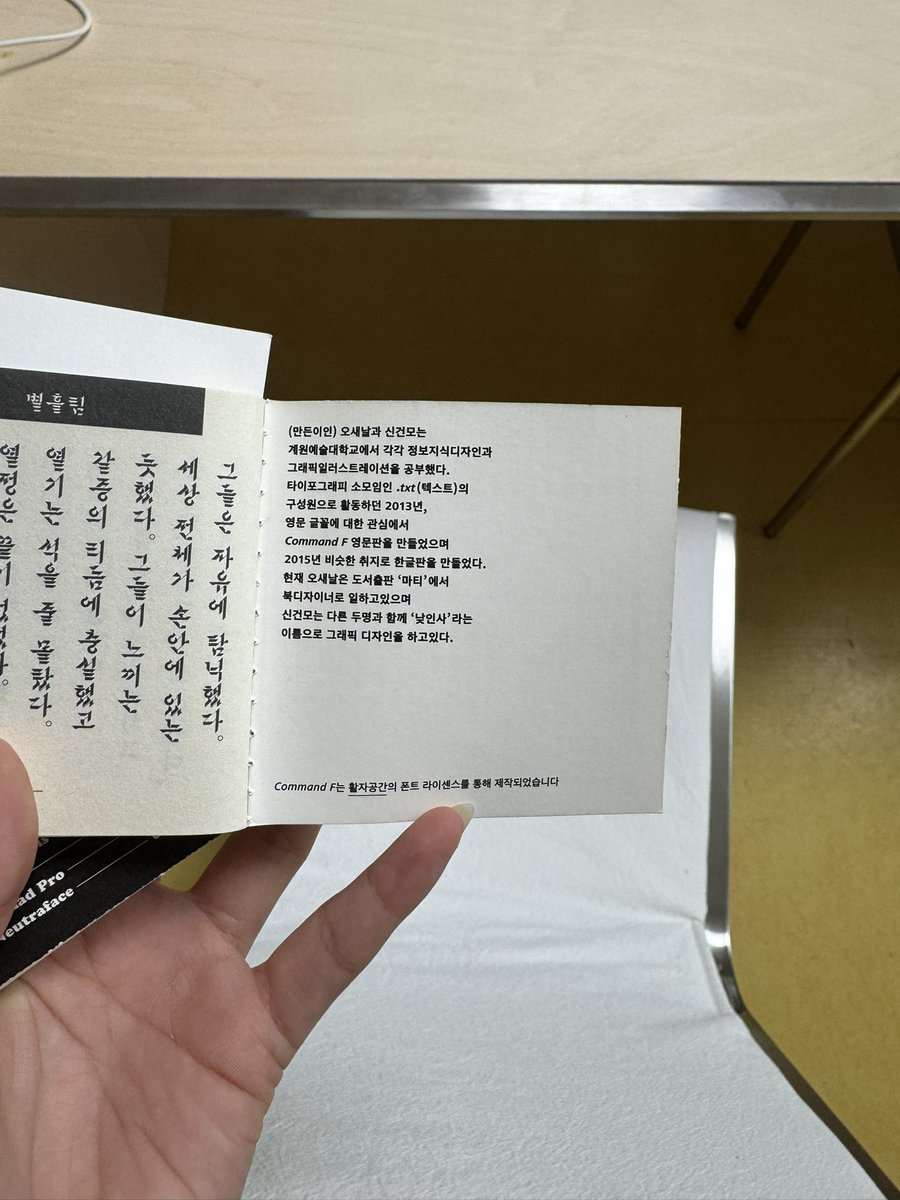 별흘림
그들은 자유에 탐닉했다.
세상 전체가 손안에 있는
듯했다. 그들이 느끼는
갈증의 리듬에 충실했고
열기는 식을 줄 몰랐다.
열정은 끝이 없었다.
(만든이인) 오새날과 신건모는
계원예술대학교에서 각각 정보지식디자인과
그래픽일러스트레이션을 공부했다.
타이포그래피 소모임인 .txt(텍스트)의
구성원으로 활동하던 2013년,
영문 글꼴에 대한 관심에서
Command F 영문판을 만들었으며
2015년 비슷한 취지로 한글판을 만들었다.
현재 오새날은 도서출판 ‘마티’에서
북디자이너로 일하고있으며
신건모는 다른 두명과 함께 ‘낮인사’라는
이름으로 그래픽 디자인을 하고있다.
Command F는 활자공간의 폰트 라이센스를 통해 제작되었습니다
Pro
Neutraface